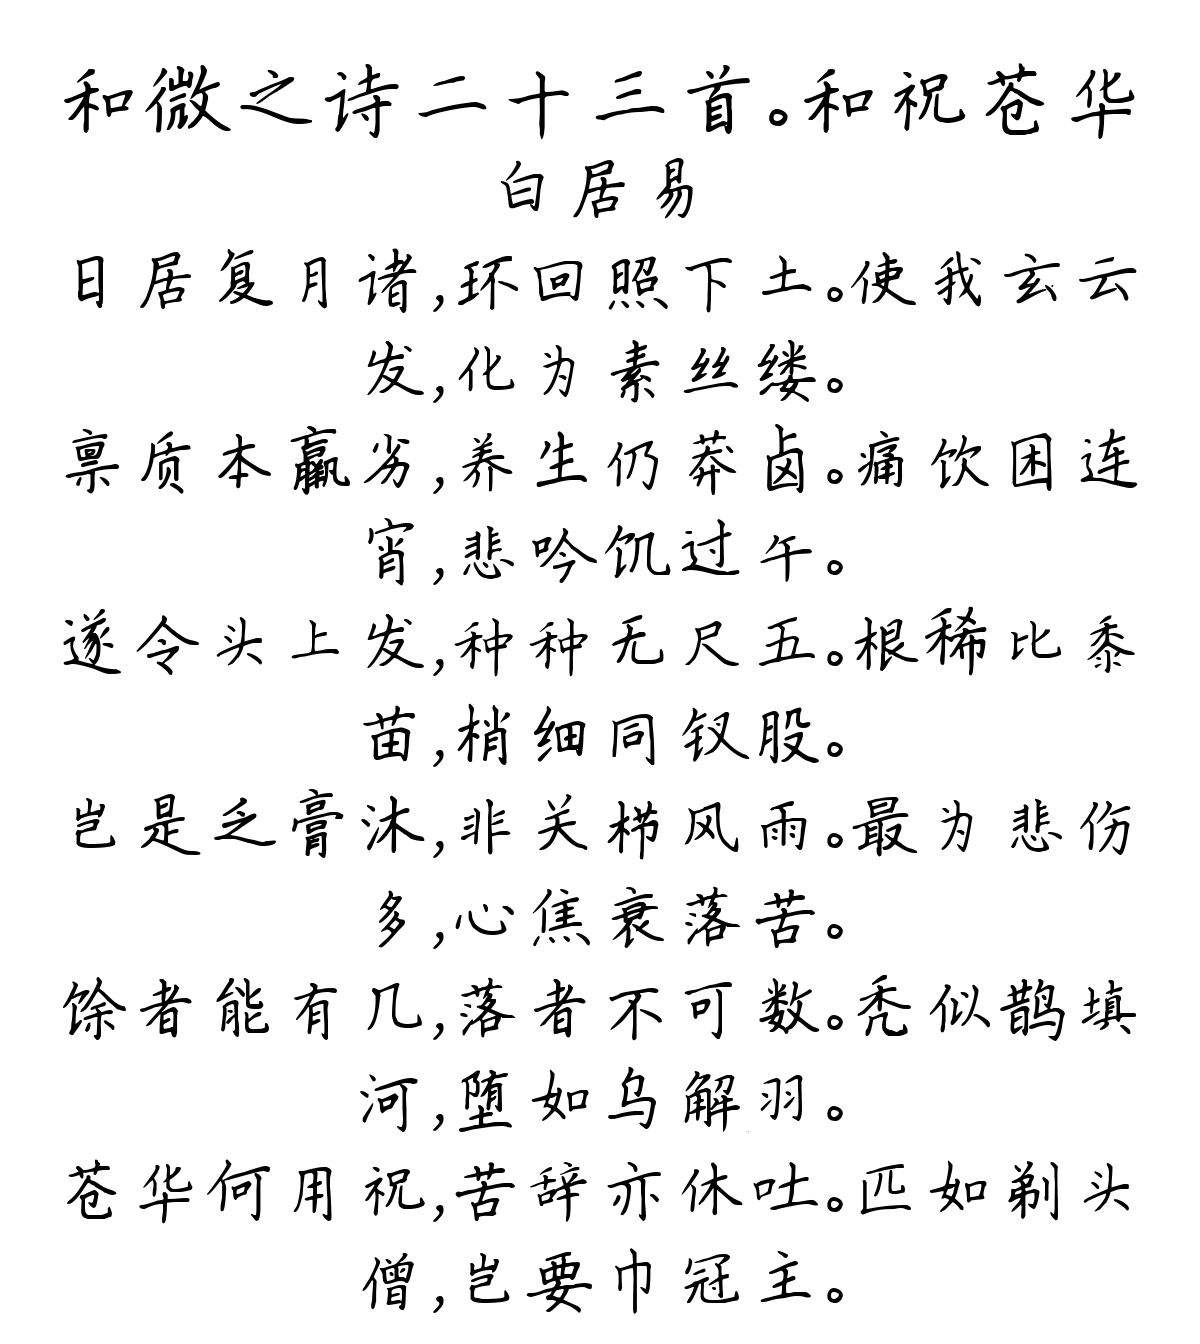 和微之诗二十三首。和祝苍华
白居易
日居复月诸,环回照下土。使我玄云
发,化为素丝缕。
禀质本羸劣,养生仍莽卤。痛饮困连
宵,悲吟饥过午。
遂令头上发,种种无尺五。根稀比黍
苗,梢细同钗股。
岂是乏膏沐,非关栉风雨。最为悲伤
多,心焦衰落苦。
馀者能有几,落者不可数。秃似鹊填
河,堕如乌解羽。
苍华何用祝,苦辞亦休吐。匹如剃头
僧,岂要巾冠主。